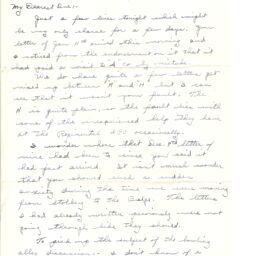 My Dearest Sue:-
Just a few lines tonight which might
be my only chance for a few days. Your
letter of Jan 11th arrived this morning and
I noticed from the endorsement on it that it
had paid a visit to "D" Co by mistake.
We do have quite a few letters get
mixed up between "A" and "H" but I can
see that it wasn't your fault. The
"A" is quite plain, so the fault lies with
some of the inexperienced help they have
at the Regimental APO occasionally.
I wonder where that Dec letter of
mine had been to since you said it
had just arrived. It isn't much wonder
that you showed such an undue
anxiety during the time we were moving
from to the Bulge. The letters
I had already written previously were not
going through like they should.
To pick up the subject of the bowling
alley discussion - I don't know of a